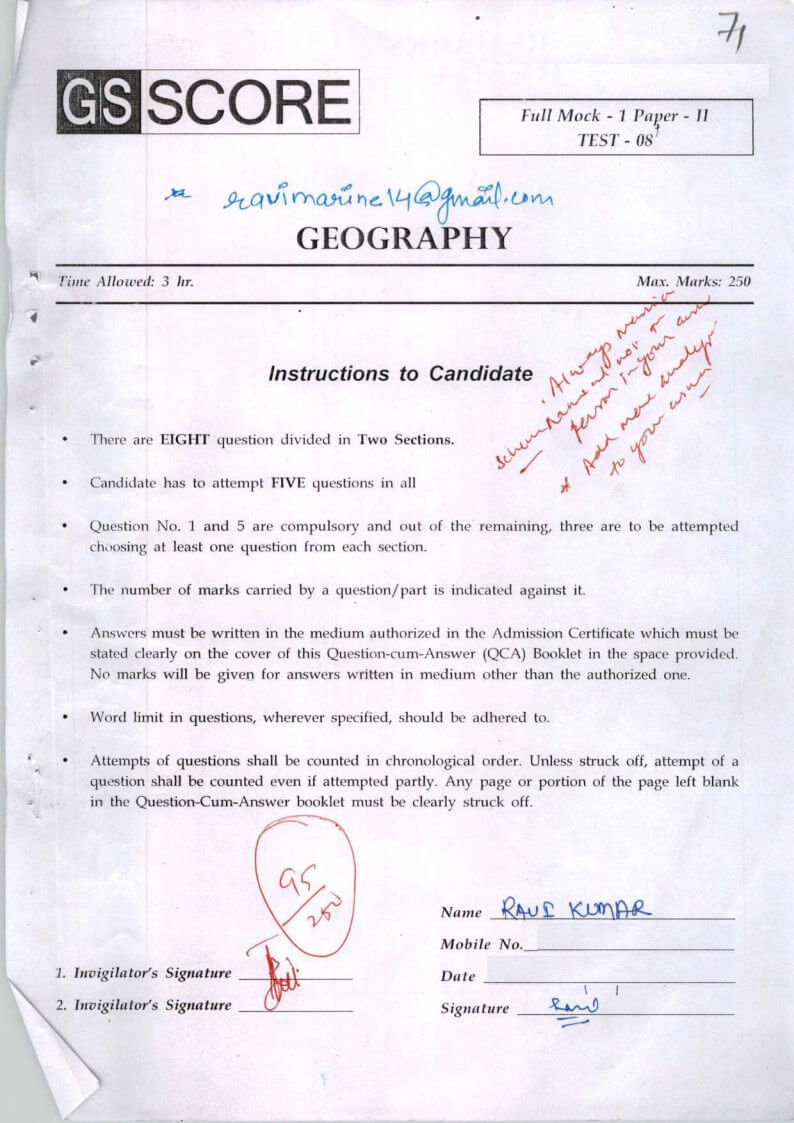 71
GS SCORE
Full Mock - 1 Paper - II
TEST - 08
ravimarine14@gmail.com
GEOGRAPHY
Time Allowed: 3 hr.
Max. Marks: 250
Instructions to Candidate
Always
name and not
person in your
* Add more
to your
• There are EIGHT question divided in Two Sections.
• Candidate has to attempt FIVE questions in all
• Question No. 1 and 5 are compulsory and out of the remaining, three are to be attempted
choosing at least one question from each section.
• The number of marks carried by a question/part is indicated against it.
• Answers must be written in the medium authorized in the Admission Certificate which must be
stated clearly on the cover of this Question-cum-Answer (QCA) Booklet in the space provided.
No marks will be given for answers written in medium other than the authorized one.
• Word limit in questions, wherever specified, should be adhered to.
• Attempts of questions shall be counted in chronological order. Unless struck off, attempt of a
question shall be counted even if attempted partly. Any page or portion of the page left blank
in the Question-Cum-Answer booklet must be clearly struck off.
95
250
Name RAVI KUMAR
Mobile No.
1. Invigilator's Signature
Date
2. Invigilator's Signature
Signature Ravi